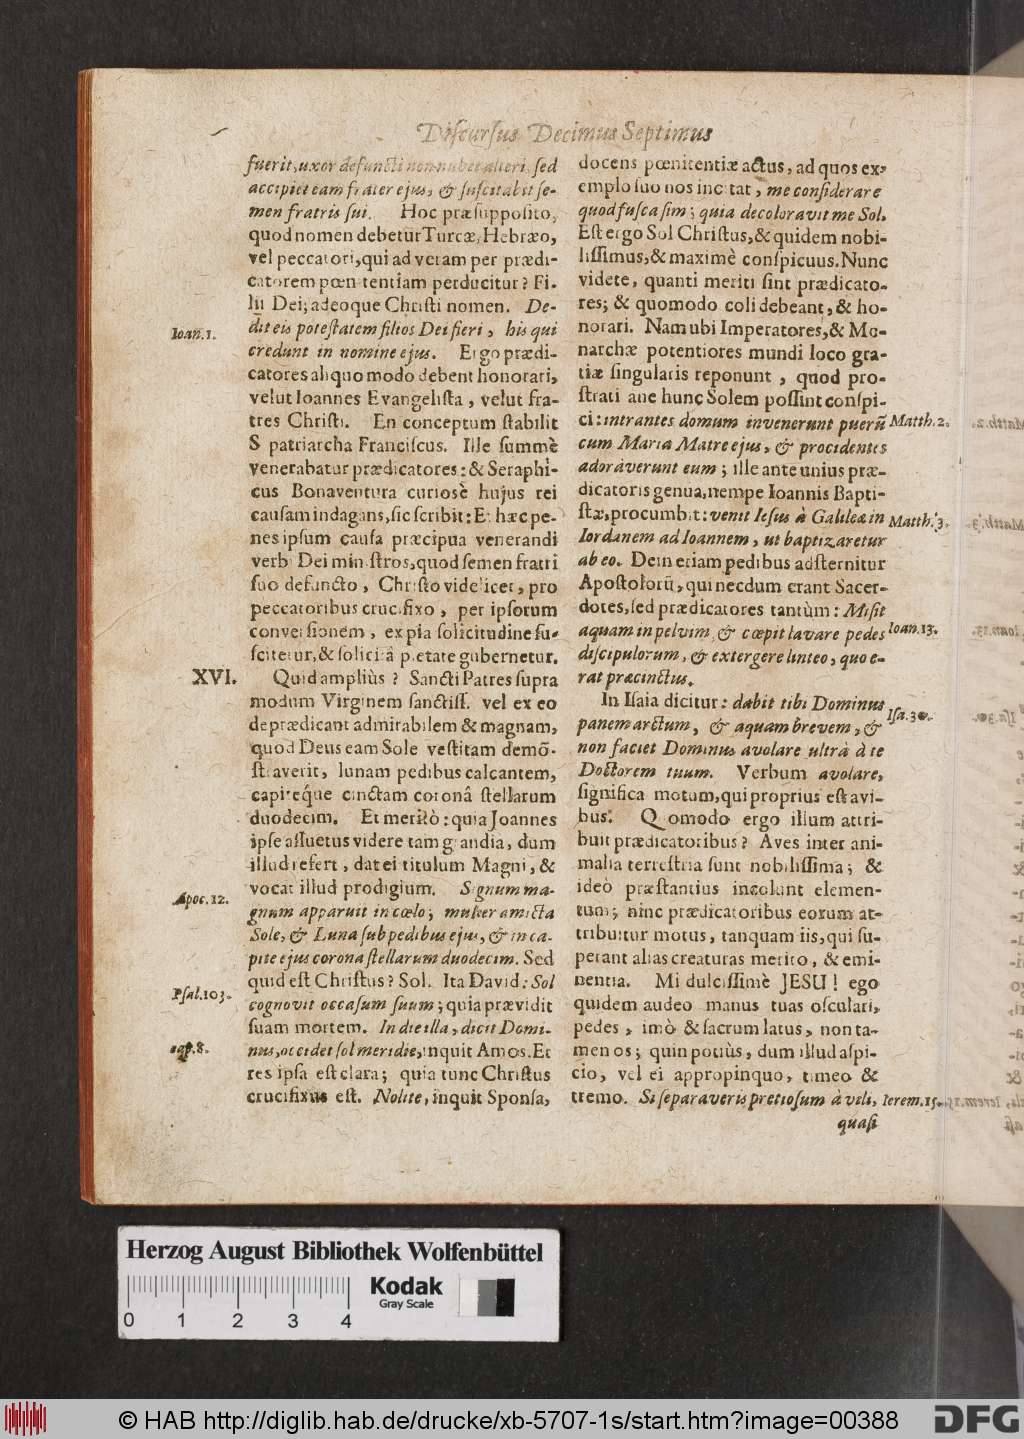 Discursus Decimus Septimus
fuerit, uxor defuncti non nubet alteri, sed
accipiet eam frater ejus, & suscitabit se-
men fratris sui. Hoc præsupposito,
quod nomen debetur Turcæ, Hebræo,
vel peccatori, qui ad veram per prædi-
catorem pœnitentiam perducitur? Fi-
lii Dei; adeoque Christi nomen. De-
Ioan. 1.
dit eis potestatem filios Dei fieri, his qui
credunt in nomine ejus. Ergo prædi-
catores aliquo modo debent honorari,
velut Ioannes Evangelista, velut fra-
tres Christi. En conceptum stabilit
S patriarcha Franciscus. Ille summè
venerabatur prædicatores: & Seraphi-
cus Bonaventura curiosè hujus rei
causam indagans, sic scribit: Et hæc pe-
nes ipsum causa præcipua venerandi
verbi Dei ministros, quod semen fratri
suo defuncto, Christo videlicet, pro
peccatoribus crucifixo, per ipsorum
conversionem, ex pia solicitudine su-
scitetur, & solicitâ pietate gubernetur.
XVI.
Quid ampliùs? Sancti Patres supra
modum Virginem sanctiss. vel ex eo
deprædicant admirabilem & magnam,
quod Deus eam Sole vestitam demõ-
straverit, lunam pedibus calcantem,
capiteq́ue cinctam coronâ stellarum
duodecim. Et meritò: quia Joannes
ipse assuetus videre tam grandia, dum
illud refert, dat ei titulum Magni, &
vocat illud prodigium. Signum ma-
Apoc. 12.
gnum apparuit in cœlo; mulier amicta
Sole, & Luna sub pedibus ejus, & in ca-
pite ejus corona stellarum duodecim. Sed
quid est Christus? Sol. Ita David: Sol
Psal. 103.
cognovit occasum suum; quia prævidit
suam mortem. In die illa, dicit Domi-
cap. 8.
nus, occidet sol meridie, inquit Amos. Et
res ipsa est clara; quia tunc Christus
crucifixus est. Nolite, inquit Sponsa,
docens pœnitentiæ actus, ad quos ex-
emplo suo nos incitat, me considerare
quod fusca sim; quia decoloravit me Sol.
Est ergo Sol Christus, & quidem nobi-
lissimus, & maximè conspicuus. Nunc
videte, quanti meriti sint prædicato-
res; & quomodo coli debeant, & ho-
norari. Nam ubi Imperatores, & Mo-
narchæ potentiores mundi loco gra-
tiæ singularis reponunt, quod pro-
strati ante hunc Solem possint conspi-
ci: intrantes domum invenerunt puerũ
Matth. 2.
cum Maria Matre ejus, & procidentes
adoraverunt eum; ille ante unius præ-
dicatoris genua, nempe Ioannis Bapti-
stæ, procumbit: venit Iesus à Galilea in
Matth. 3.
Iordanem ad Ioannem, ut baptizaretur
ab eo. Dein etiam pedibus adsternitur
Apostolorũ, qui necdum erant Sacer-
dotes, sed prædicatores tantùm: Misit
aquam in pelvim, & cœpit lavare pedes
Ioan. 13.
discipulorum, & extergere linteo, quo e-
rat præcinctus.
In Isaia dicitur: dabit tibi Dominus
Isa. 30.
panem arctum, & aquam brevem, &
non faciet Dominus avolare ultrà à te
Doctorem tuum. Verbum avolare,
significa motum, qui proprius est avi-
bus. Quomodo ergo illum attri-
buit prædicatoribus? Aves inter ani-
malia terrestria sunt nobilissima; &
ideò præstantius incolunt elemen-
tum; hinc prædicatoribus eorum at-
tribuitur motus, tanquam iis, qui su-
perant alias creaturas merito, & emi-
nentia. Mi dulcissimè JESU! ego
quidem audeo manus tuas osculari,
pedes, imò & sacrum latus, non ta-
men os; quin potiùs, dum illud aspi-
cio, vel ei appropinquo, timeo &
tremo. Si separaveris pretiosum à vili,
Ierem. 15.
quasi
Herzog August Bibliothek Wolfenbüttel
Kodak
Gray Scale
0 1 2 3 4
© HAB http://diglib.hab.de/drucke/xb-5707-1s/start.htm?image=00388
DFG